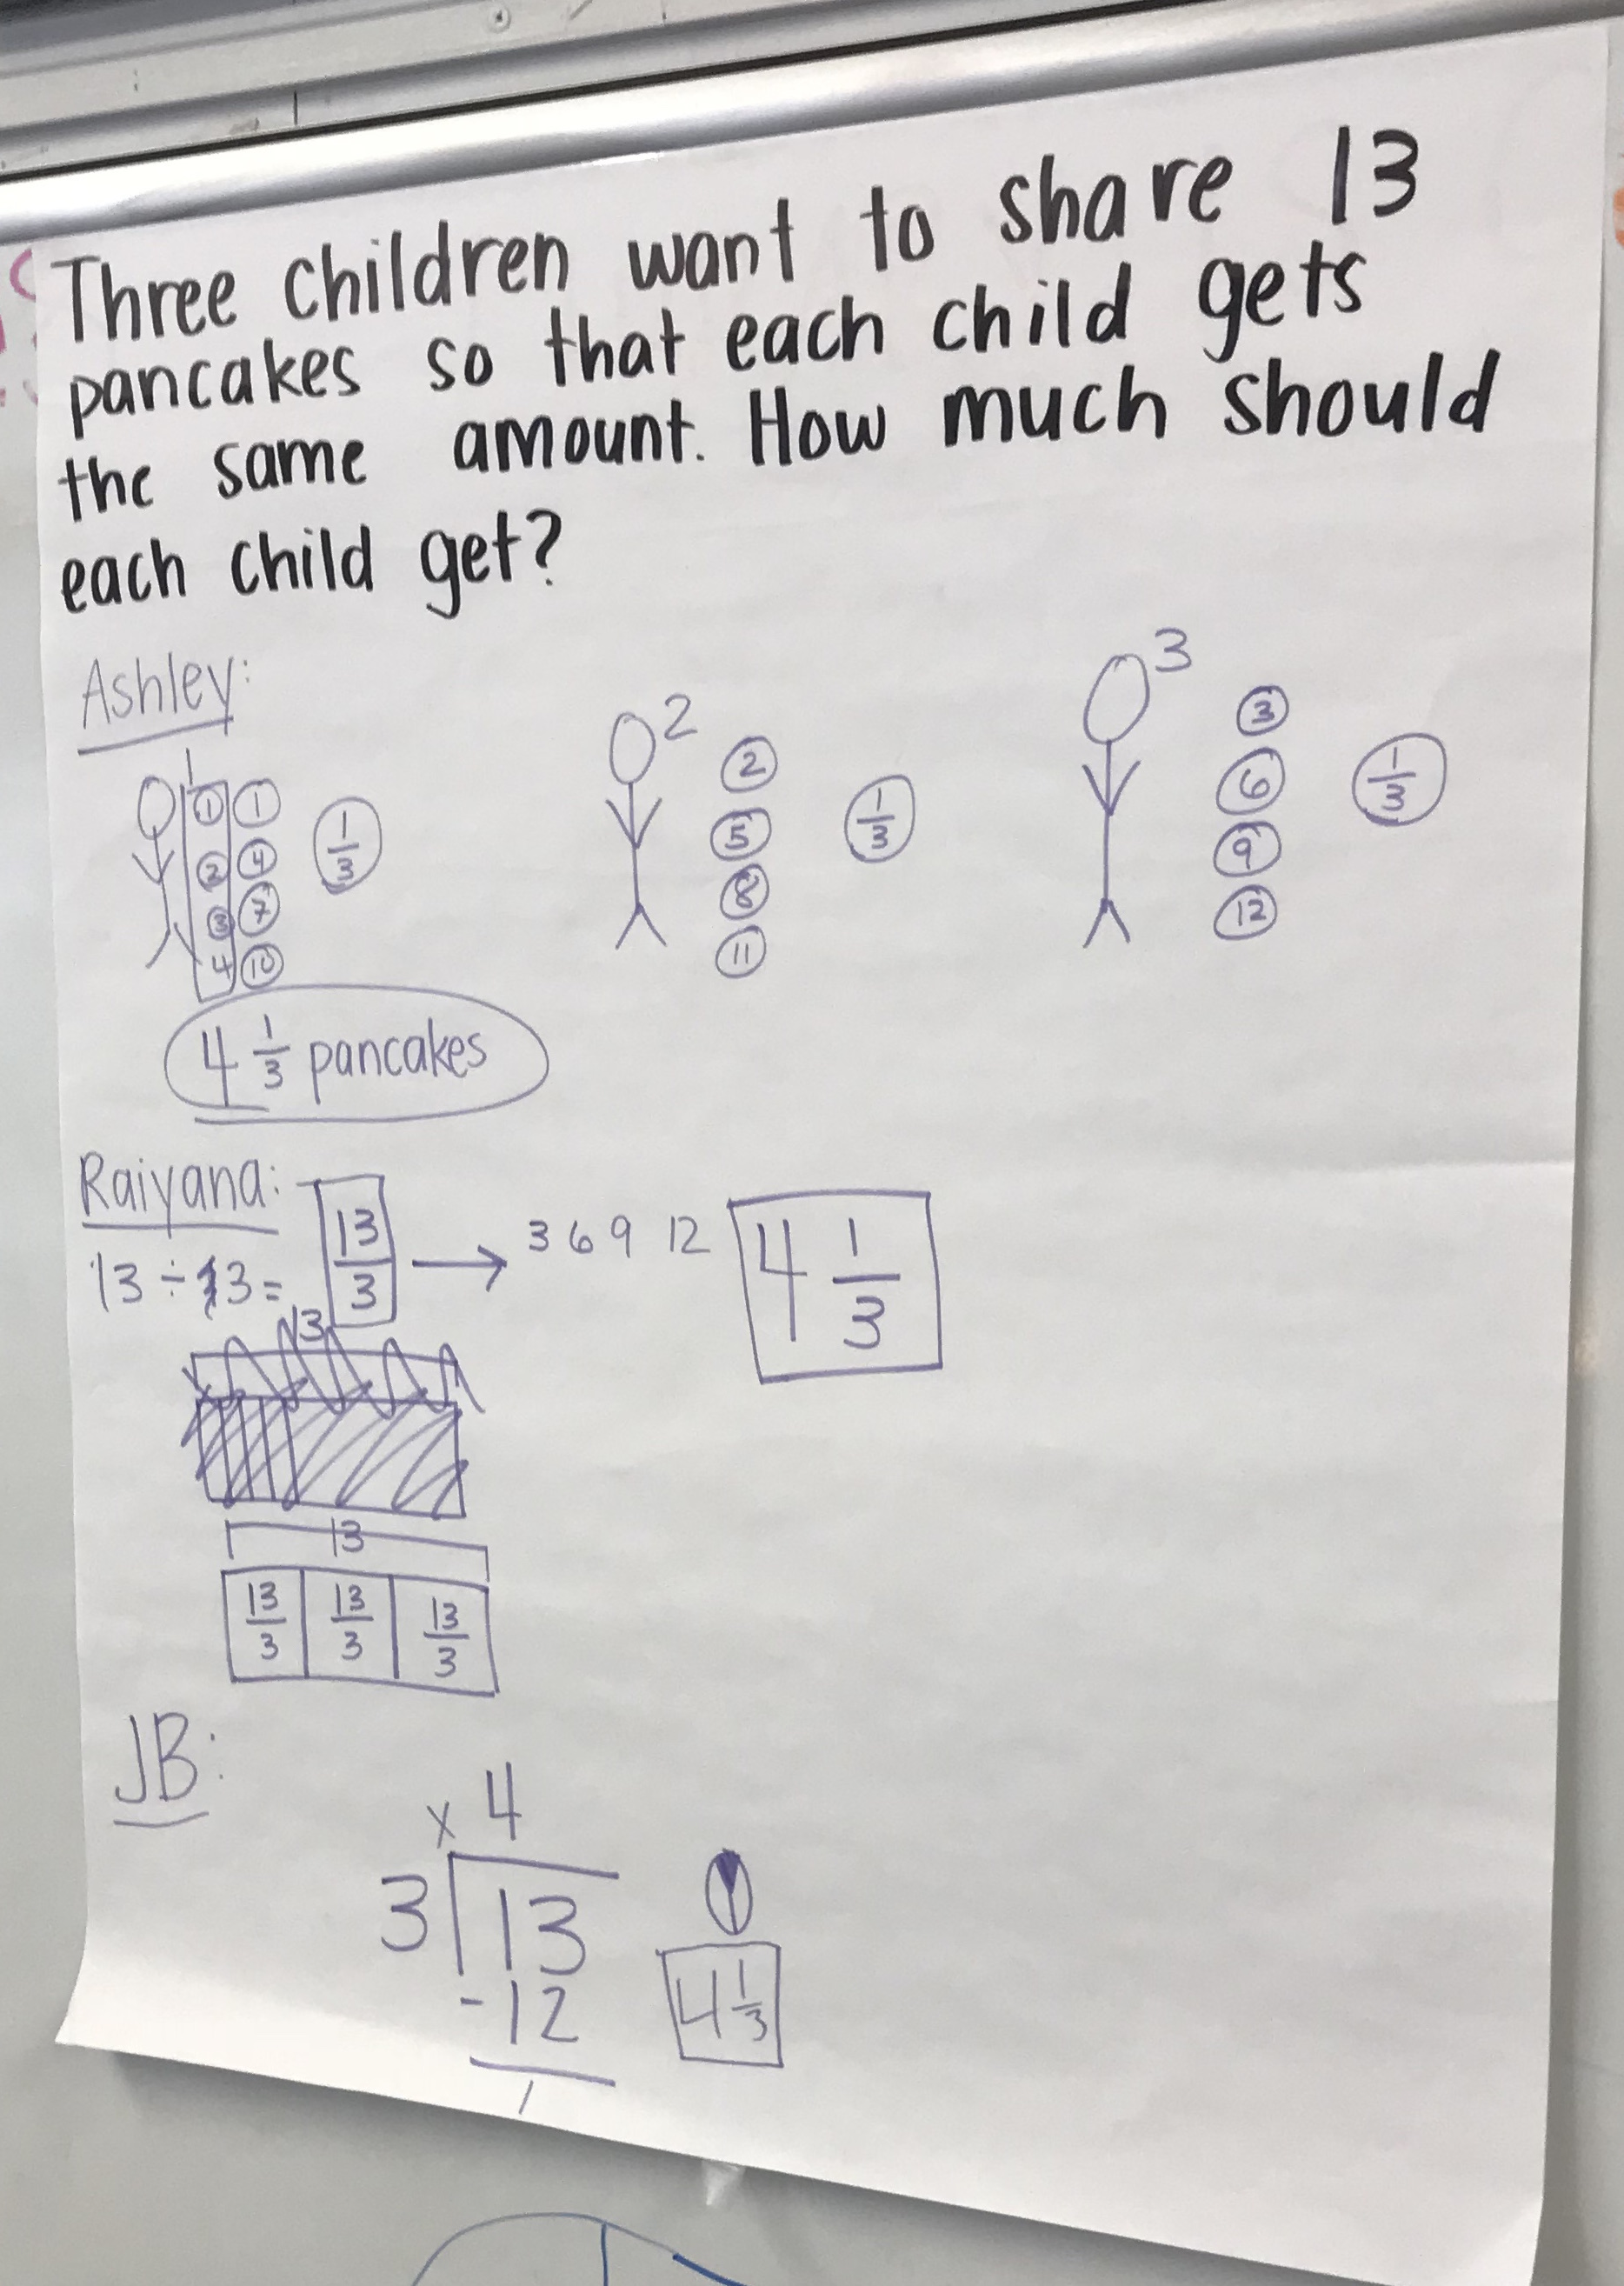 Three children want to share 13
pancakes so that each child gets
the same amount. How much should
each child get?
Ashley:
1 2 3
1 1 1/3 2 1/3 3 1/3
2 4 5 6
3 7 8 9
4 10 11 12
4 1/3 pancakes
Raiyana:
13 ÷ 3 = 13/3 → 3 6 9 12 4 1/3
13
13
13/3 13/3 13/3
JB:
x 4
3 13
-12 4 1/3
1